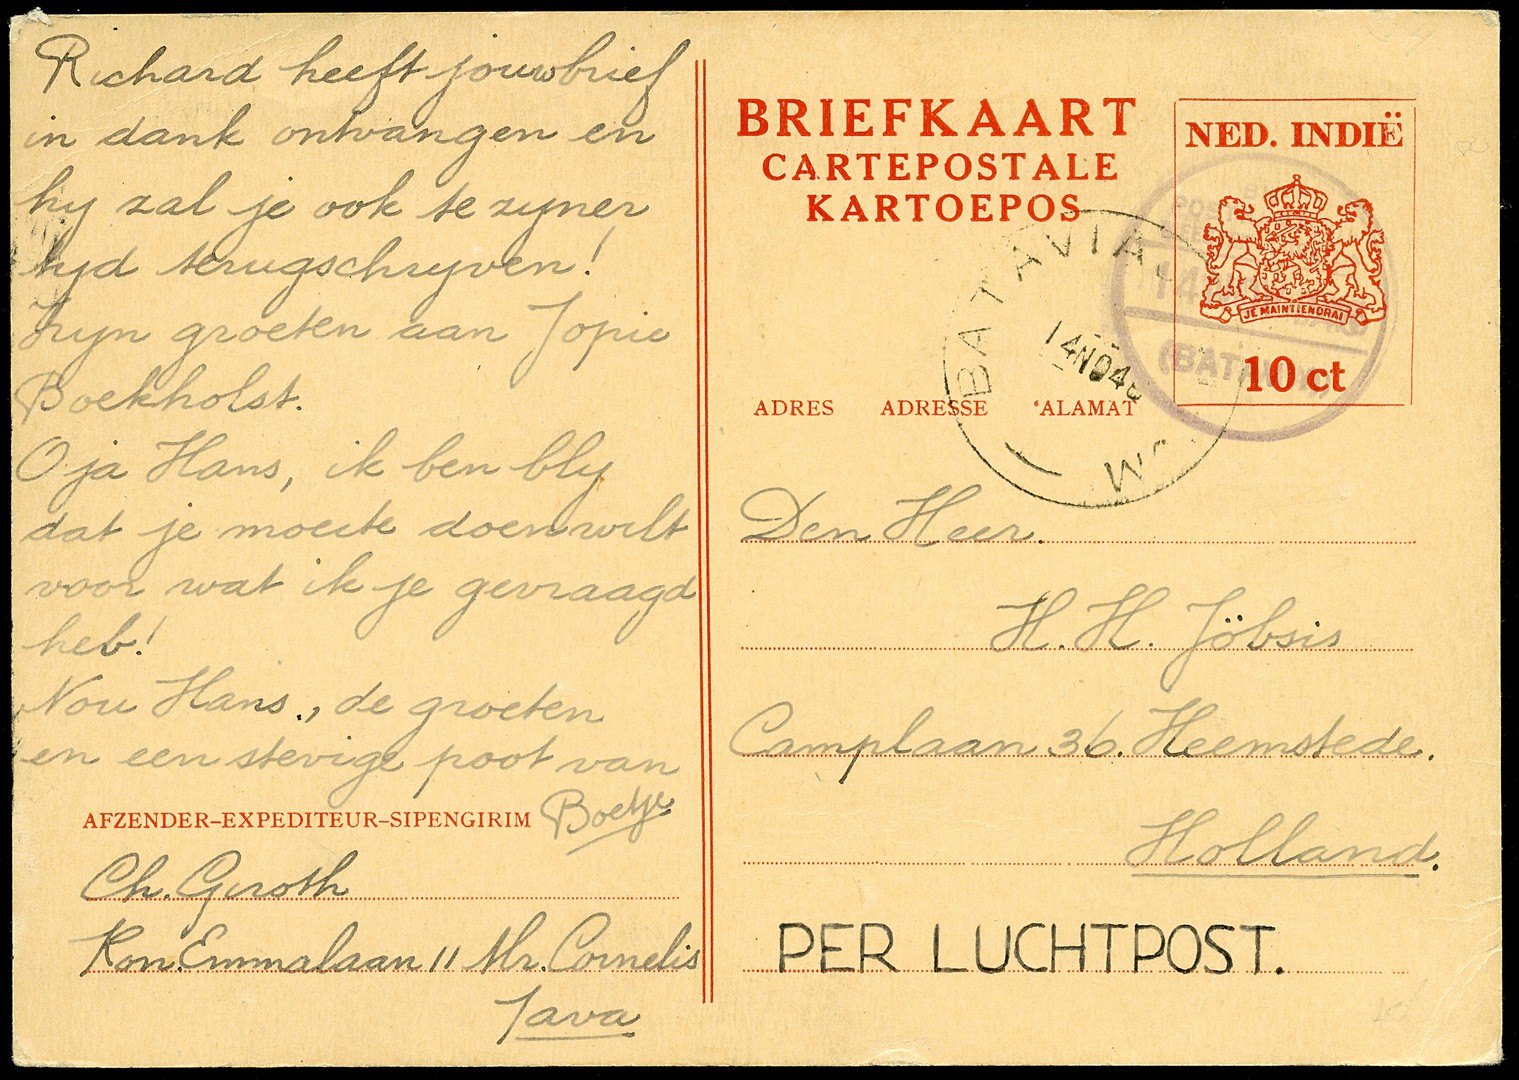 Richard heeft jouw brief
in dank ontvangen en
hy zal je ook te zyner
tyd terugschryven!
Zyn groeten aan Jopie
Boekholst.
O ja Hans, ik ben bly
dat je moeite doen wilt
voor wat ik je gevraagd
heb!
Nou Hans., de groeten
en een stevige poot van
Boetje
AFZENDER-EXPEDITEUR-SIPENGIRIM
Ch. Geroth
Kon. Emmalaan 11 Mr. Cornelis
Java
BRIEFKAART
CARTEPOSTALE
KARTOEPOS
NED. INDIË
JE MAINTIENDRAI
10 ct
BATAVIA
14 NO 46
(BATAVIA)
ADRES ADRESSE 'ALAMAT
Den Heer.
H. H. Jöbsis
Camplaan 36. Heemstede.
Holland.
PER LUCHTPOST.